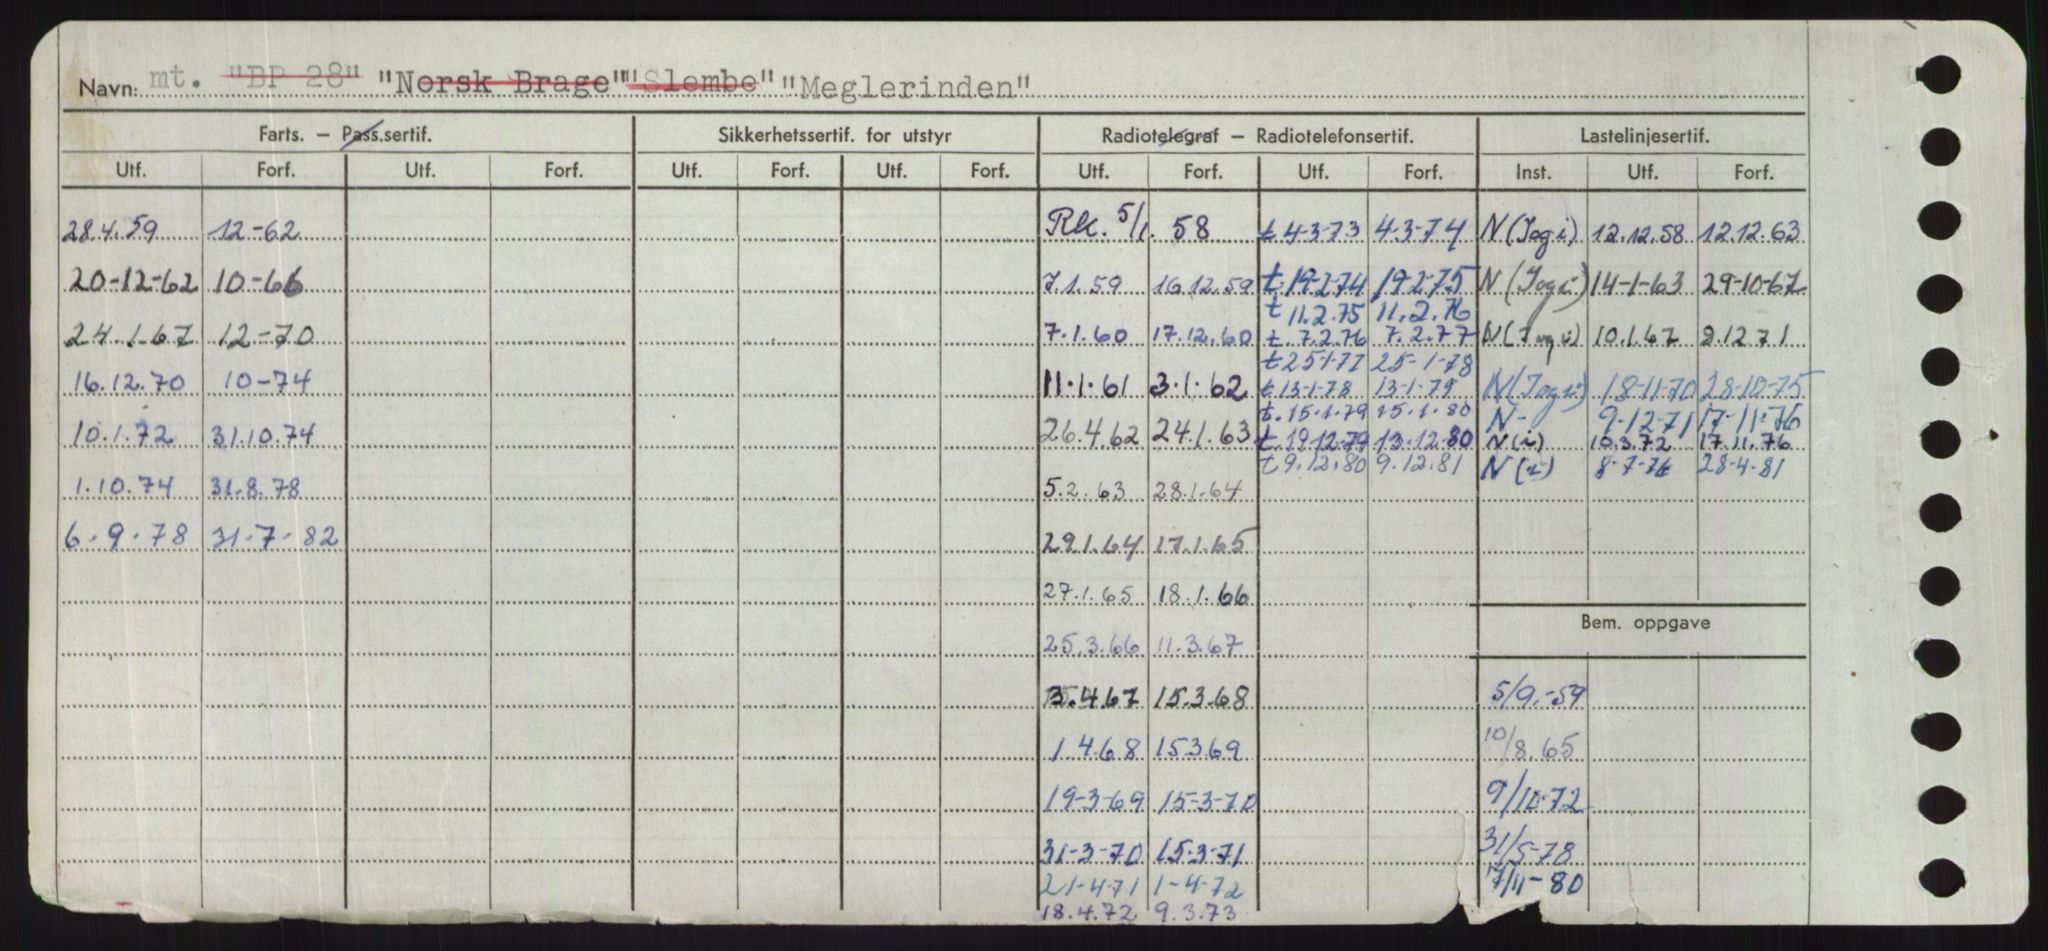 Navn: mt. "BP 28" "Norsk Brage" "Slembe" "Meglerinden"
Farts. — Pass.sertif. Sikkerhetssertif. for utstyr Radiotelegraf — Radiotelefonsertif. Lastelinjesertif.
Utf. Forf. Utf. Forf. Utf. Forf. Utf. Forf. Utf. Forf. Utf. Forf. Inst. Utf. Forf.
28.4.59 12-62 Rk. 5/1. 58 t 4-3-73 4-3-74 N (Jogi) 12.12.58 12.12.63
20-12-62 10-66 7.1.59 16.12.59 t 19-2-74 19-2-75 N (Jogi) 14-1-63 29-10-67
t 11.2.75 11.2.76
24.1.67 12-70 7.1.60 17.12.60 t. 7.2.76 7.2.77 N (Jogi) 10.1.67 9.12 71
t 25-1-77 25-1-78
16.12.70 10-74 11.1.61 3.1.62 t 13-1-78 13-1-79 N (Jogi) 18-11-70 28-10-75
t. 15.1.79 15.1.80 N- 9-12-71 17-11-76
10.1.72 31.10.74 26.4.62 24.1.63 t. 19.12.79 13.12.80 N (i) 10.3.72 17.11.76
t 9.12.80 9.12.81 N (i) 8-7-76 28-4-81
1.10.74 31.8.78 5.2.63 28.1.64
6.9.78 31-7-82 29.1.64 17.1.65
27.1.65 18.1.66
Bem. oppgave
25.3.66 11.3.67
3.4.67 15.3.68 5/9.-59
1.4.68 15.3.69 10/8.65
19-3-69 15-3-70 9/10-72
31-3-70 15-3-71 31/5-78
21-4-71 1-4-72 7/11-80
18.4.72 9.3.73